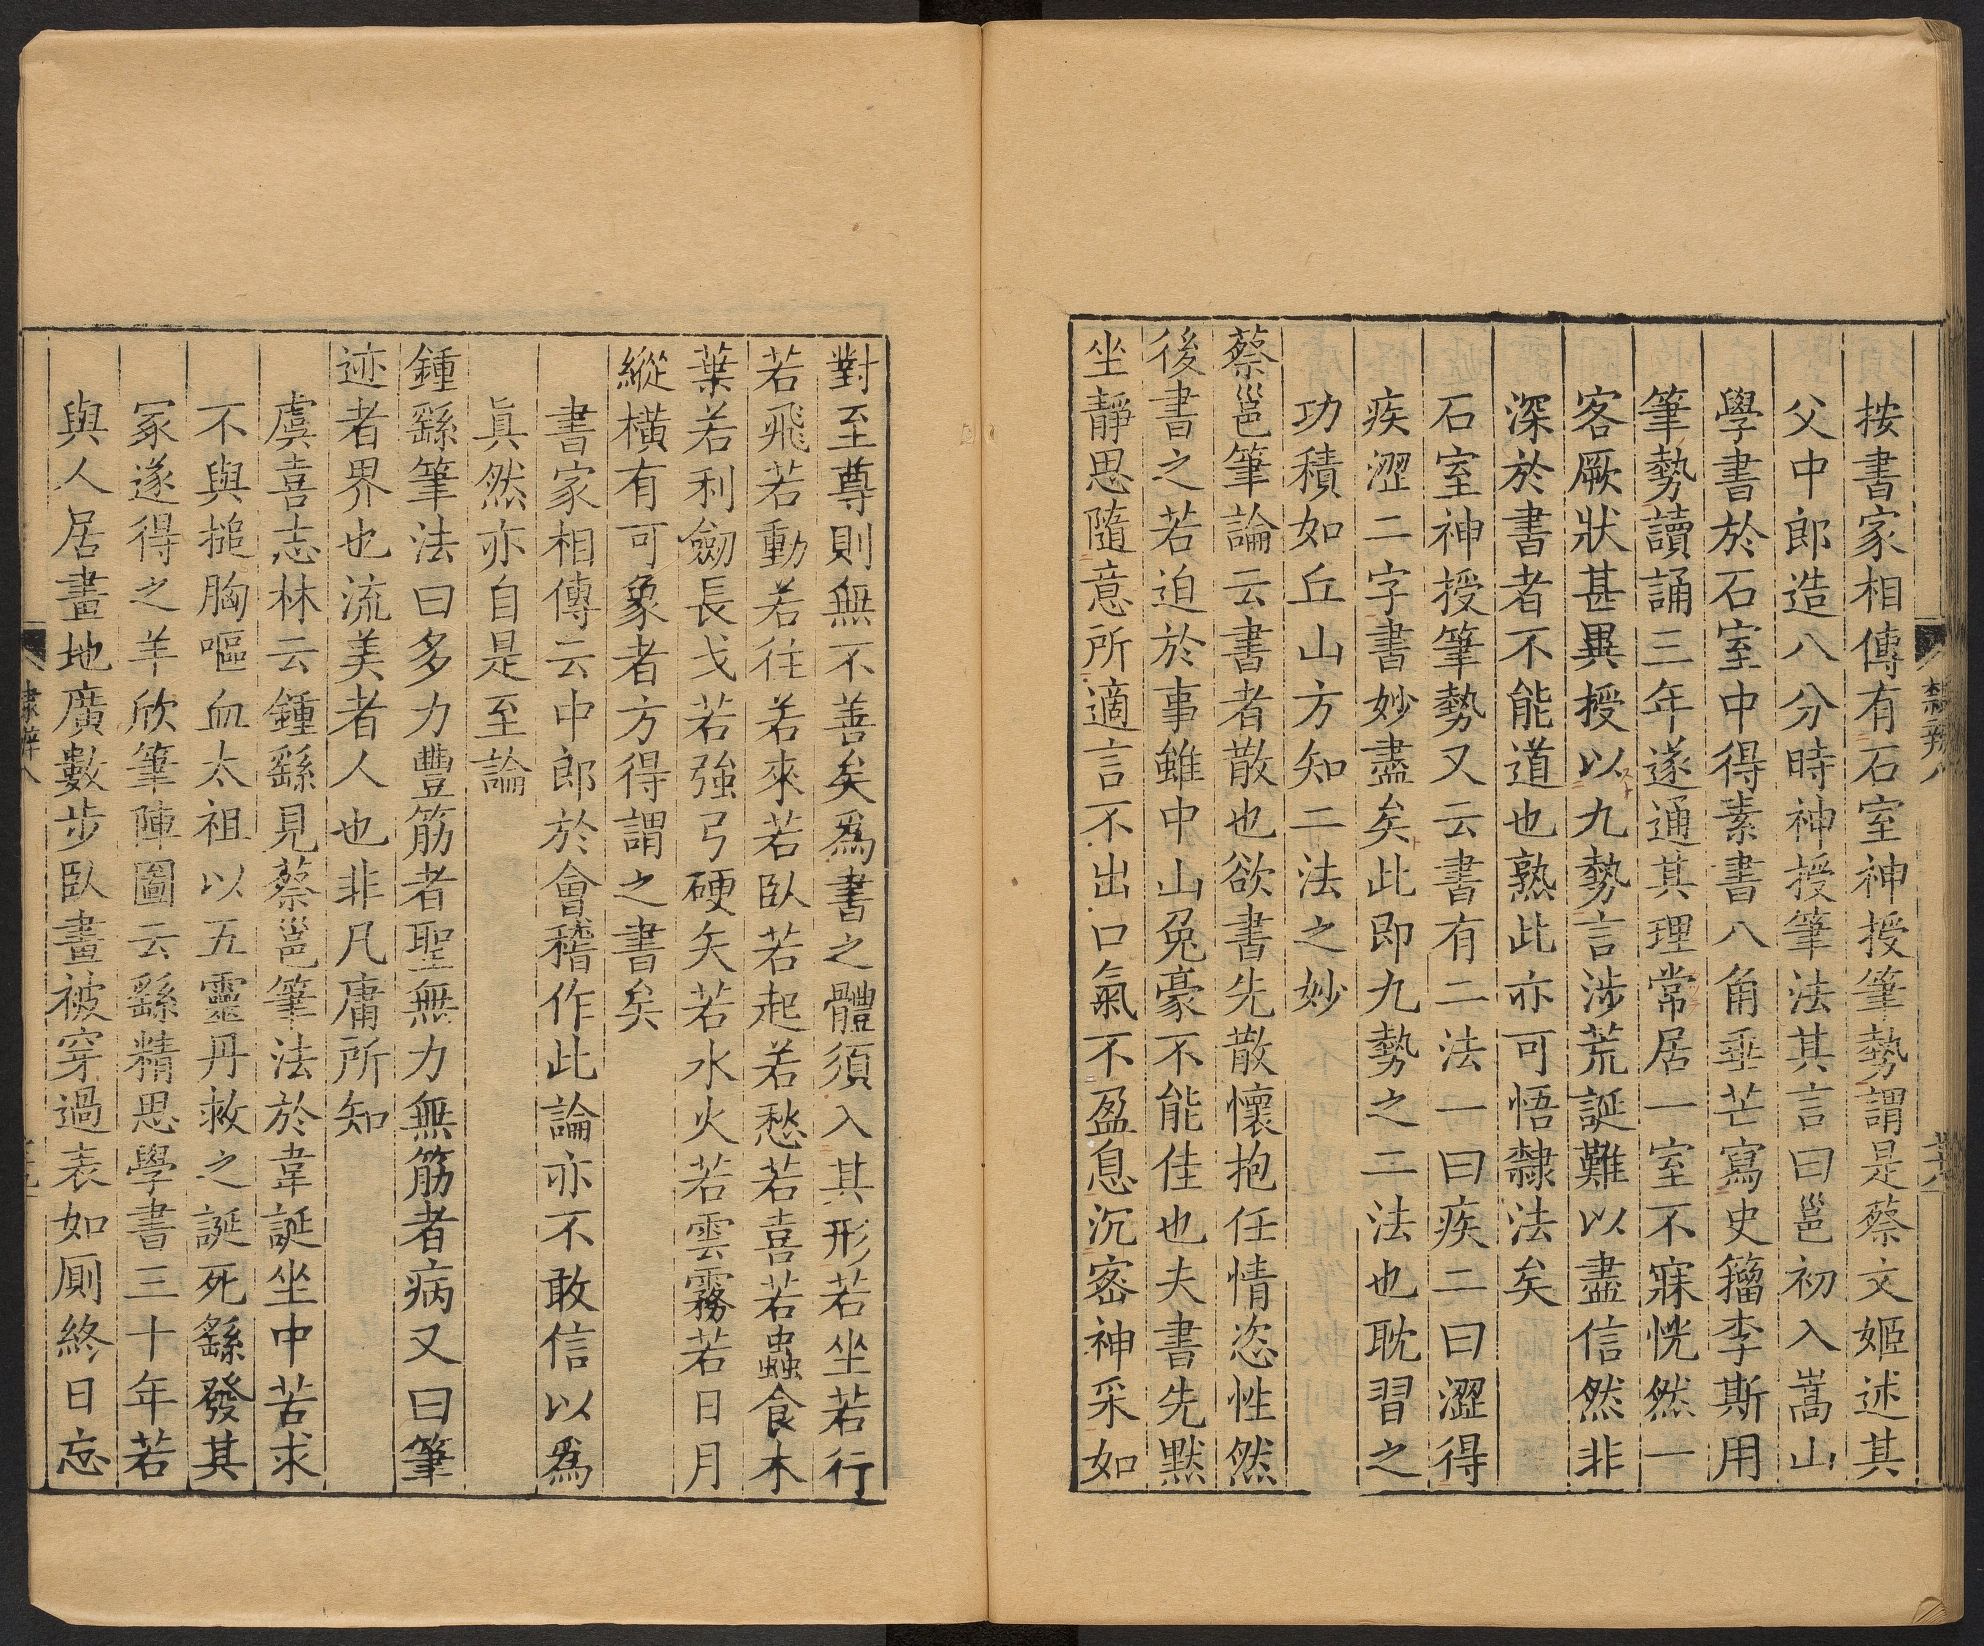 按書家相傳有石室神授筆勢謂是蔡文姬述其
父中郎造八分時神授筆法其言曰邕初入嵩山
學書於石室中得素書八角垂芒寫史籀李斯用
筆勢讀誦三年遂通其理常居一室不寐恍然一
客厥狀甚異授以九勢言涉荒誕難以盡信然非
深於書者不能道也熟此亦可悟隸法矣
石室神授筆勢又云書有二法一曰疾二曰澀得
疾澀二字書妙盡矣此即九勢之二法也耽習之
功積如丘山方知二法之妙
蔡邕筆論云書者散也欲書先散懷抱任情恣性然
後書之若迫於事雖中山兔豪不能佳也夫書先默
坐靜思隨意所適言不出口氣不盈息沉密神采如
對至尊則無不善矣為書之體須入其形若坐若行
若飛若動若往若來若臥若起若愁若喜若蟲食木
葉若利劒長戈若強弓硬矢若水火若雲霧若日月
縱橫有可象者方得謂之書矣
書家相傳云中郎於會稽作此論亦不敢信以為
眞然亦自是至論
鍾繇筆法曰多力豐筋者聖無力無筋者病又曰筆
迹者界也流美者人也非凡庸所知
虞喜志林云鍾繇見蔡邕筆法於韋誕坐中苦求
不與搥胸嘔血太祖以五靈丹救之誕死繇發其
冢遂得之羊欣筆陣圖云繇精思學書三十年若
與人居畫地廣數步臥畫被穿過表如厠終日忘
隸辨八